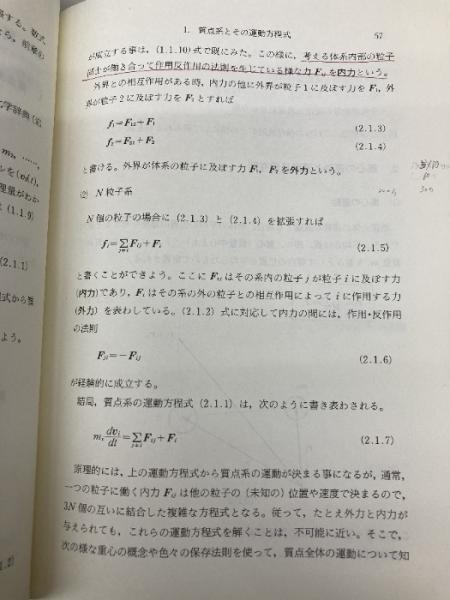 1. 質点系とその運動方程式 57
が成立する事は，(1.1.10)式で既にみた。この様に，考える体系内部の粒子
同士が働き合って作用反作用の法則を生じている様な力 F_ij を内力という。
外界との相互作用がある時，内力の他に外界が粒子1に及ぼす力を F₁，外
界が粒子2に及ぼす力を F₂ とすれば
f₁=F₁₂+F₁ (2.1.3)
f₂=F₂₁+F₂ (2.1.4)
と書ける。外界が体系の粒子に及ぼす力 F₁，F₂ を外力という。
(2) N粒子系
N個の粒子の場合に (2.1.3) と (2.1.4) を拡張すれば
f_i=∑_{j≠i}F_ij+F_i (2.1.5)
と書くことができよう。ここに F_ij はその系内の粒子 j が粒子 i に及ぼす力
(内力)であり，F_i はその系の外の粒子との相互作用によって i に作用する力
(外力) を表わしている。(2.1.2) 式に対応して内力の間には，作用・反作用
の法則
F_ji=−F_ij (2.1.6)
が経験的に成立する。
結局，質点系の運動方程式 (2.1.1) は，次のように書き表わされる。
m_i dv_i/dt=∑_{j≠i}F_ij+F_i (2.1.7)
原理的には，上の運動方程式から質点系の運動が決まる事になるが，通常，
一つの粒子に働く内力 F_ij は他の粒子の (未知の) 位置や速度で決まるので，
3N個の互いに結合した複雑な方程式となる。従って，たとえ外力と内力が
与えられても，これらの運動方程式を解くことは，不可能に近い。そこで，
次の様な重心の概念や色々の保存法則を使って，質点全体の運動について知